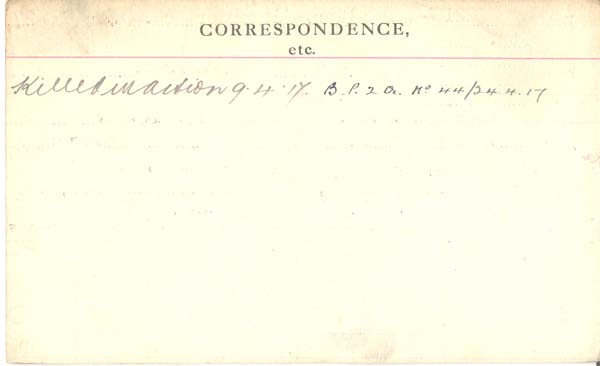 CORRESPONDENCE,
etc.
Killed in action 9.4.17. B.P.2a. No 44/24.4.17